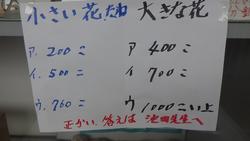 小さい花 大きな花
ア. 200こ ア 400こ
イ. 500こ イ 700こ
ウ. 760こ ウ 1000こい上
正かい、答えは 池田先生へ